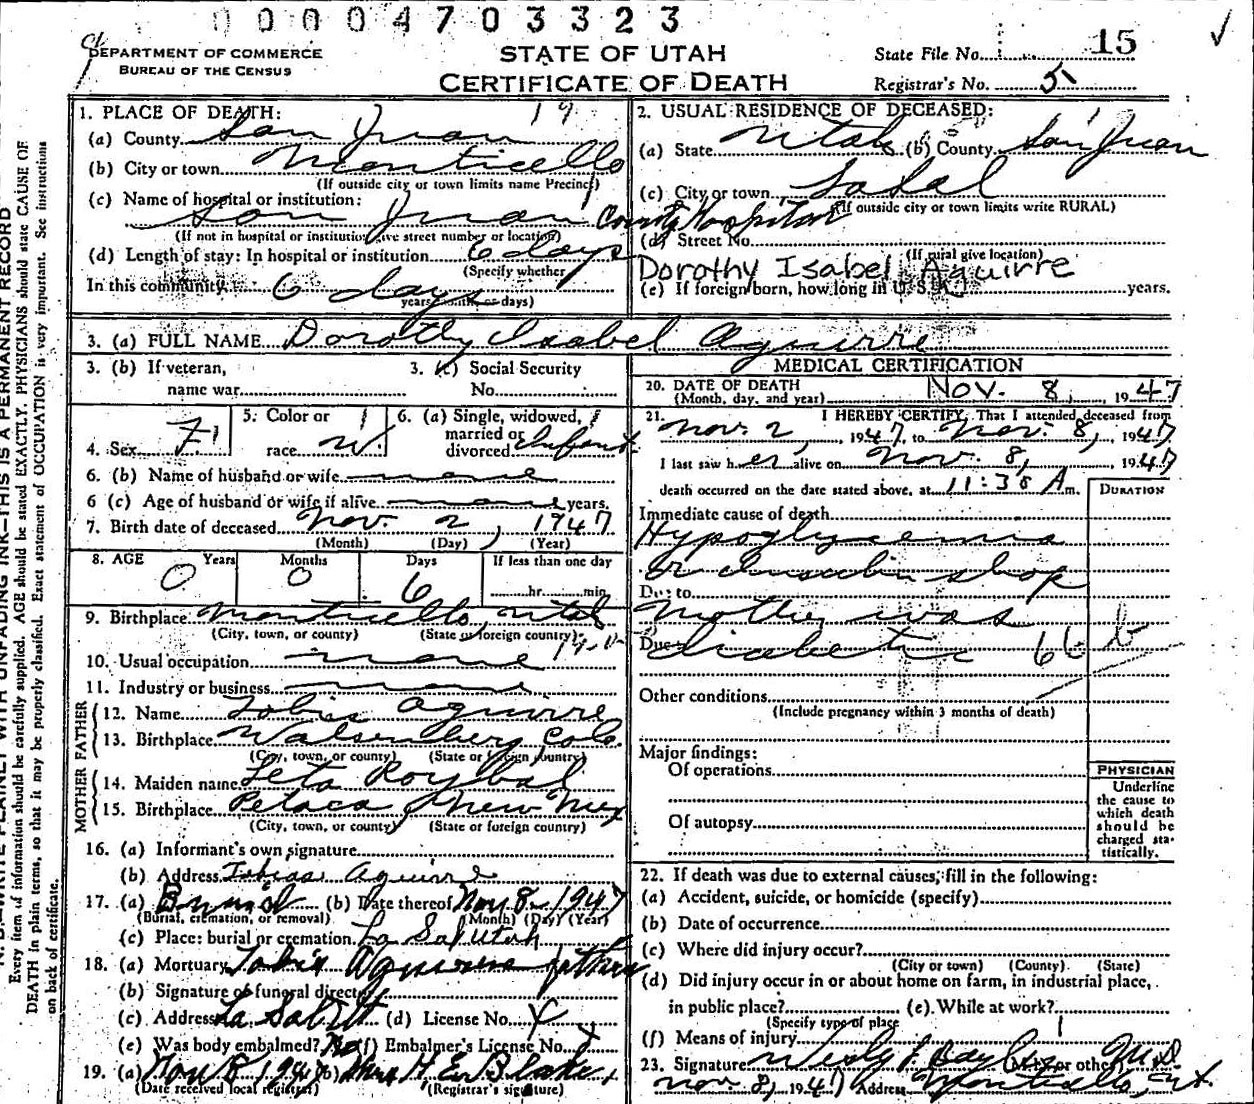 00004703323
15
DEPARTMENT OF COMMERCE
BUREAU OF THE CENSUS
STATE OF UTAH
CERTIFICATE OF DEATH
State File No.
Registrar's No. 5
1. PLACE OF DEATH: 19
(a) County San Juan
(b) City or town Monticello
(If outside city or town limits name Precinct)
(c) Name of hospital or institution:
San Juan County Hospital
(If not in hospital or institution give street number or location)
(d) Length of stay: In hospital or institution 6 days
(Specify whether
In this community 6 days
years, months, or days)
2. USUAL RESIDENCE OF DECEASED:
(a) State Utah (b) County San Juan
(c) City or town LaSal
(If outside city or town limits write RURAL)
(d) Street No.
(If rural give location)
Dorothy Isabel Aguirre
(e) If foreign born, how long in U. S. A.? years.
3. (a) FULL NAME Dorothy Isabel Aguirre
3. (b) If veteran,
name war
3. (c) Social Security
No.
4. Sex F
5. Color or
race W.
6. (a) Single, widowed,
married or
divorced Infant
6. (b) Name of husband or wife none
6 (c) Age of husband or wife if alive none years.
7. Birth date of deceased Nov. 2, 1947
(Month) (Day) (Year)
8. AGE Years Months Days If less than one day
0 0 6 hr. min.
9. Birthplace Monticello, Utah
(City, town, or county) (State or foreign country)
10. Usual occupation none
11. Industry or business none
FATHER
12. Name Tobias Aguirre
13. Birthplace Walsenberg Colo.
(City, town, or county) (State or foreign country)
MOTHER
14. Maiden name Leta Roybal
15. Birthplace Petaca New Mex
(City, town, or county) (State or foreign country)
16. (a) Informant's own signature
(b) Address Tobias Aguirre
17. (a) Burial (b) Date thereof Nov 8 1947
(Burial, cremation, or removal) (Month) (Day) (Year)
(c) Place: burial or cremation La Sal Utah
18. (a) Mortuary Tobis Aguirre father
(b) Signature of funeral director
(c) Address La Sal Ut (d) License No. X
(e) Was body embalmed? No (f) Embalmer's License No. X
19. (a) Nov 8 1947 (b) Mrs H. E. Blake
(Date received local registrar) (Registrar's signature)
MEDICAL CERTIFICATION
20. DATE OF DEATH Nov. 8, 1947
(Month, day, and year)
21. I HEREBY CERTIFY, That I attended deceased from
Nov. 2, 1947, to Nov. 8, 1947
I last saw her alive on Nov. 8, 1947
death occurred on the date stated above, at 11:30 A m.
DURATION
Immediate cause of death
Hypoglycemia
or Insulin shop
Due to
Mother was
Due to
diabetic 66 b
Other conditions
(Include pregnancy within 3 months of death)
Major findings:
Of operations
Of autopsy
PHYSICIAN
Underline
the cause to
which death
should be
charged sta-
tistically.
22. If death was due to external causes, fill in the following:
(a) Accident, suicide, or homicide (specify)
(b) Date of occurrence
(c) Where did injury occur?
(City or town) (County) (State)
(d) Did injury occur in or about home on farm, in industrial place,
in public place? (e) While at work?
(Specify type of place
(f) Means of injury
23. Signature (M.D. or other) M.D.
Nov 8, 1947 Address Monticello, Ut.
N. B.—WRITE PLAINLY WITH UNFADING INK—THIS IS A PERMANENT RECORD
Every item of information should be carefully supplied. AGE should be stated EXACTLY. PHYSICIANS should state CAUSE OF
DEATH in plain terms, so that it may be properly classified. Exact statement of OCCUPATION is very important. See instructions
on back of certificate.